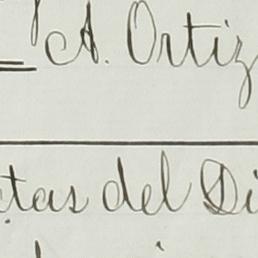 A. Ortiz
tas del Di